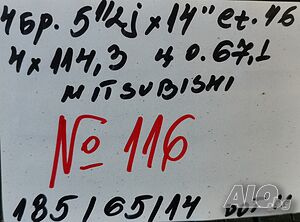 4бр. 5 1/2j x 14" et. 46
4 x 114,3 ц о. 67,1
MITSUBISHI
№ 116
185/65/14